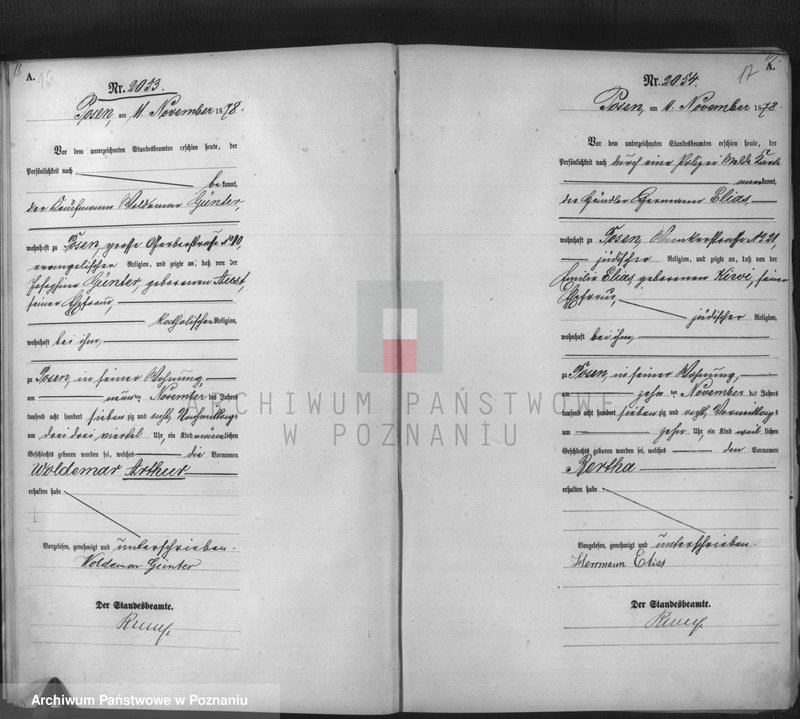 A.
Nr. 2053.
Posen, am 11. November 1878.
Vor dem unterzeichneten Standesbeamten erschien heute, der
Persönlichkeit nach
bekannt,
der Kaufmann Woldemar Günter,
wohnhaft zu Posen, große Gerberstraße No
evangelischer Religion, und zeigte an, daß von der
Josephine Günter, geborenen
seiner Ehefrau,
katholischer Religion,
wohnhaft bei ihm,
zu Posen, in seiner Wohnung,
am neun ten November des Jahres
tausend acht hundert sieben zig und acht, Nachmittags
um drei drei viertel Uhr, ein Kind männlichen
Geschlechts geboren worden sei, welches die Vornamen
Woldemar Arthur
erhalten habe
Vorgelesen, genehmigt und unterschrieben.
Woldemar Günter
Der Standesbeamte.
17
A.
Nr. 2054.
Posen, am 11. November 1878.
Vor dem unterzeichneten Standesbeamten erschien heute, der
Persönlichkeit nach durch eine Polizei Melde Karte
anerkannt,
der Händler Hermann Elias
wohnhaft zu Posen, Wronkerstraße No 21,
jüdischer Religion, und zeigte an, daß von der
Emilie Elias geborenen seiner
Ehefrau,
jüdischer Religion,
wohnhaft bei ihm,
zu Posen, in seiner Wohnung,
am zehn ten November des Jahres
tausend acht hundert sieben zig und acht, Vormittags
um zehn Uhr, ein Kind weiblichen
Geschlechts geboren worden sei, welches den Vornamen
Bertha
erhalten habe
Vorgelesen, genehmigt und unterschrieben.
Herrmann Elias
Der Standesbeamte.
ARCHIWUM PAŃSTWOWE
W POZNANIU
Archiwum Państwowe w Poznaniu